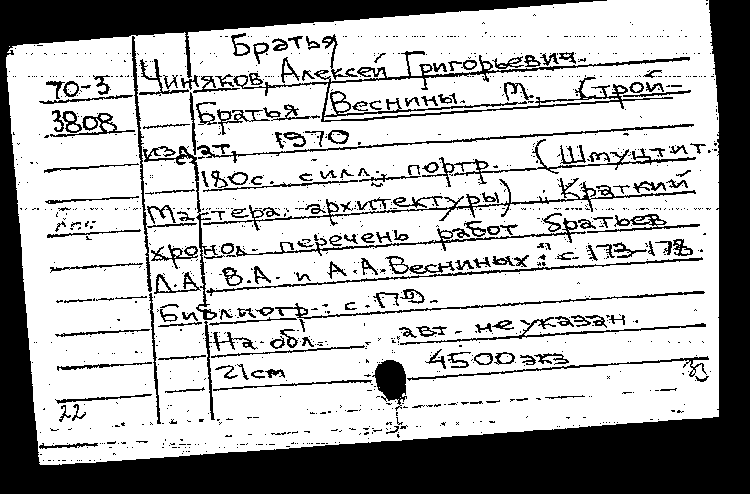 Братья
70-3 Чиняков, Алексей Григорьевич.
3808 Братья /Веснины. М., Строй-
издат, 1970.
180с. с илл., портр. (Шмуцтит.:
Мастера архитектуры) „Краткий
хронол. перечень работ братьев
Л.А., В.А. и А.А.Весниных": с 173-178.
Библиогр.: с.179.
На обл. авт. не указан.
21см 4500экз
22